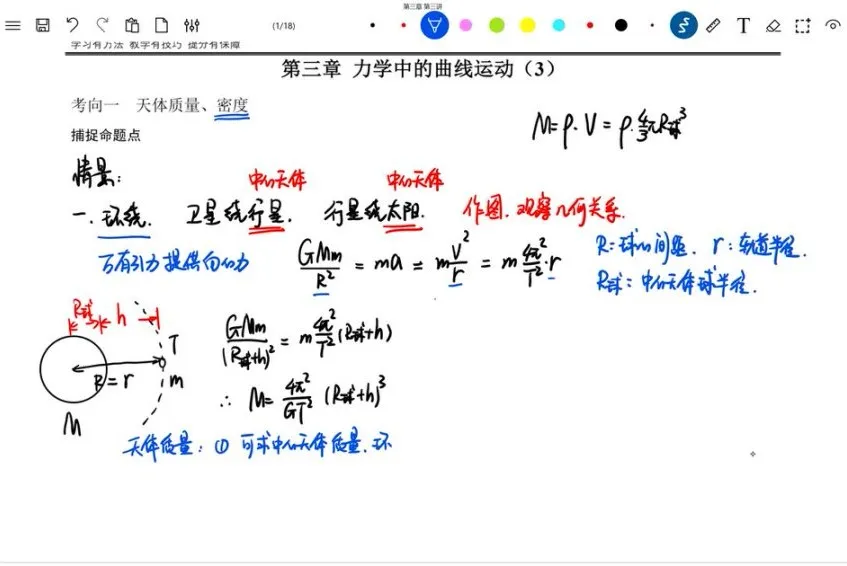 第三章 第三讲
(1/18)
T
学习有方法 教学有技巧 提分有保障
第三章 力学中的曲线运动（3）
考向一 天体质量、密度
M=ρ·V=ρ·4/3πR球³
捕捉命题点
情景：
中心天体 中心天体
一. 环绕. 卫星绕行星. 行星绕太阳. 作图.观察几何关系.
万有引力提供向心力 GMm/R²=ma=mV²/r=m4π²/T²·r
R：球心间距. r：轨道半径.
R球：中心天体球半径.
R球 h
GMm/(R球+h)²=m4π²/T²(R球+h)
T
R=r m
∴ M=4π²/GT²(R球+h)³
M
天体质量：① 可求中心天体质量.环